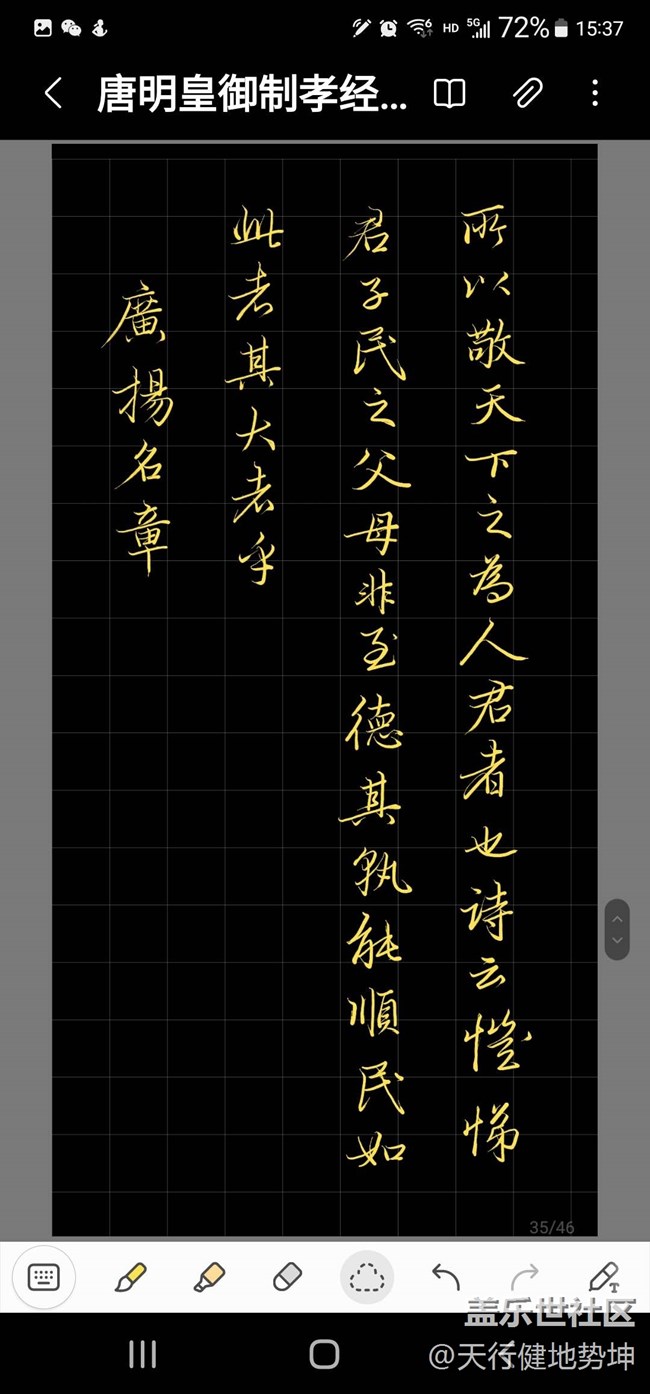 72% 15:37
唐明皇御制孝经...
所以敬天下之為人君者也詩云愷悌
君子民之父母非至德其孰能順民如
此者其大者乎
廣揚名章
35/46
盖乐世社区
@天行健地势坤